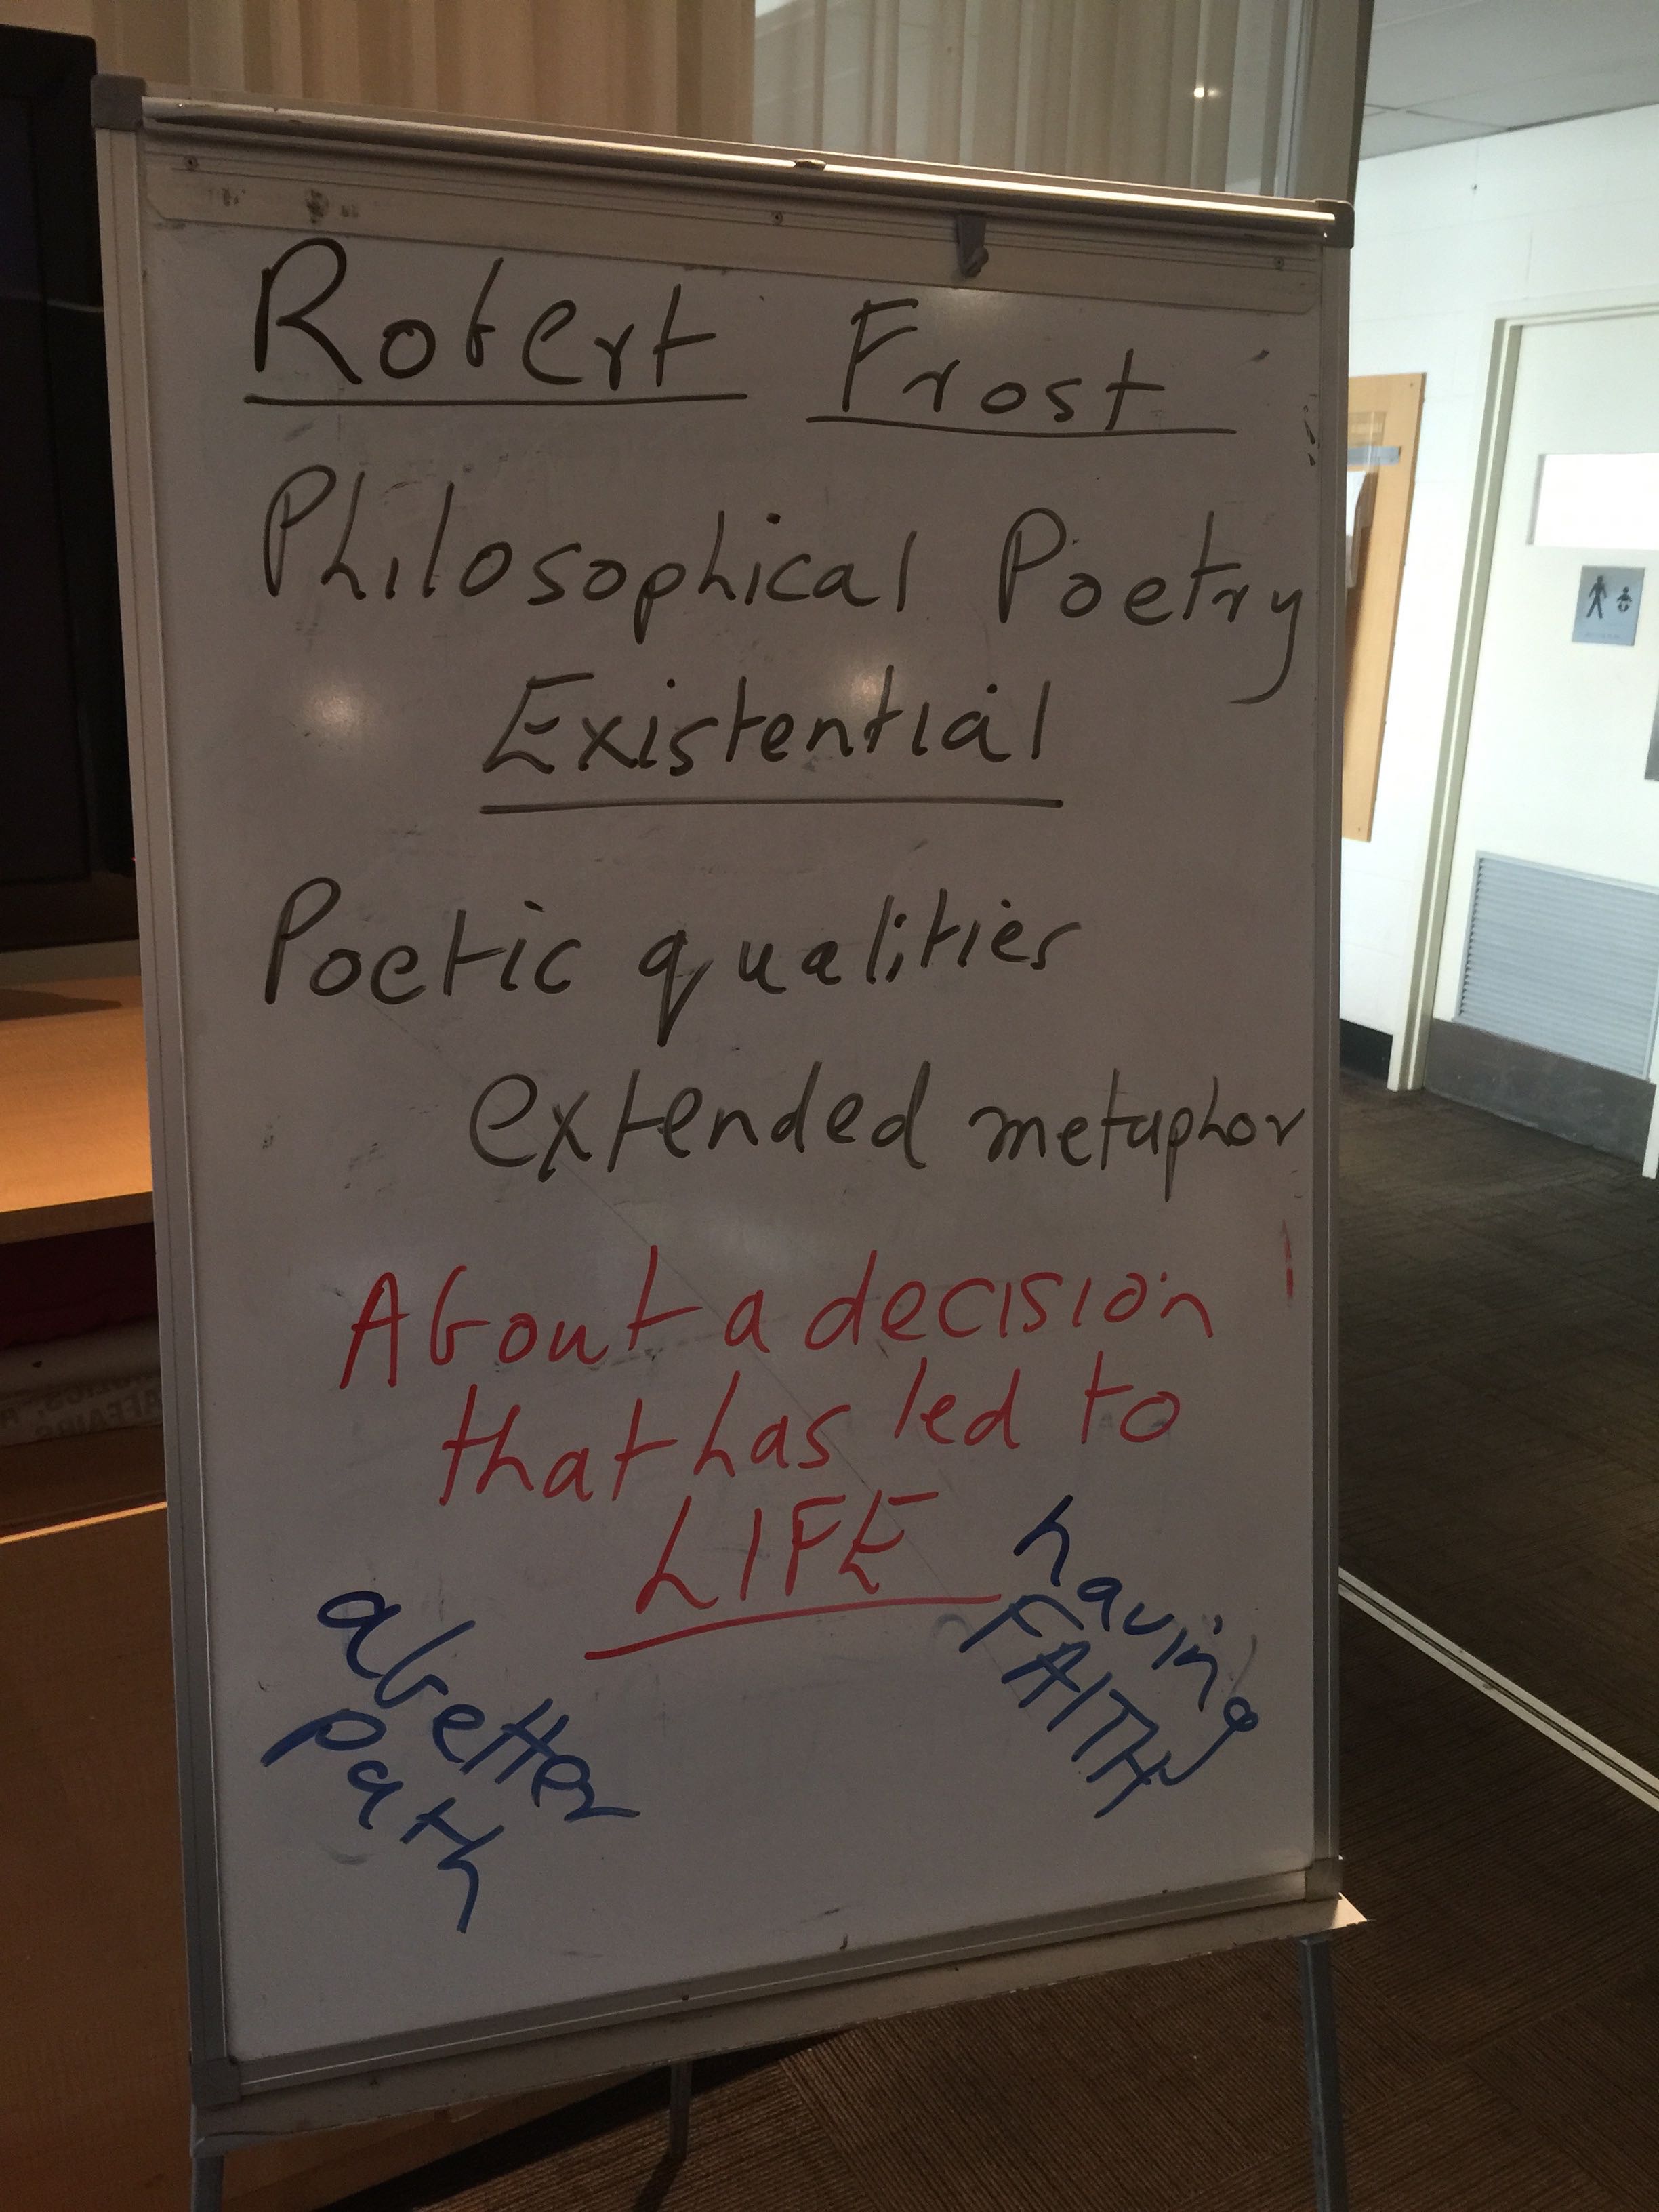 Robert Frost
Philosophical Poetry
Existential
Poetic qualities
extended metaphor
About a decision
that has led to
LIFE
a better
path
having
FAITH